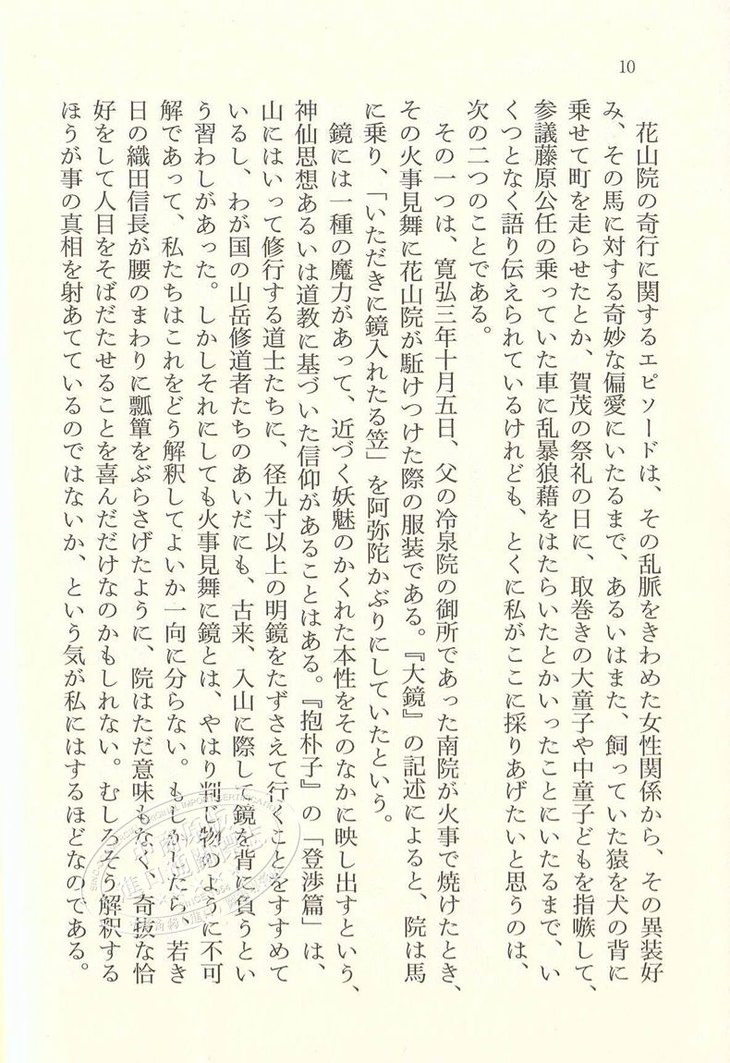 10
花山院の奇行に関するエピソードは、その乱脈をきわめた女性関係から、その異装好
み、その馬に対する奇妙な偏愛にいたるまで、あるいはまた、飼っていた猿を犬の背に
乗せて町を走らせたとか、賀茂の祭礼の日に、取巻きの大童子や中童子どもを指嗾して、
参議藤原公任の乗っていた車に乱暴狼藉をはたらいたとかいったことにいたるまで、い
くつとなく語り伝えられているけれども、とくに私がここに採りあげたいと思うのは、
次の二つのことである。
その一つは、寛弘三年十月五日、父の冷泉院の御所であった南院が火事で焼けたとき、
その火事見舞に花山院が駈けつけた際の服装である。『大鏡』の記述によると、院は馬
に乗り、「いただきに鏡入れたる笠」を阿弥陀かぶりにしていたという。
鏡には一種の魔力があって、近づく妖魅のかくれた本性をそのなかに映し出すという、
神仙思想あるいは道教に基づいた信仰があることはある。『抱朴子』の「登渉篇」は、
山にはいって修行する道士たちに、径九寸以上の明鏡をたずさえて行くことをすすめて
いるし、わが国の山岳修道者たちのあいだにも、古来、入山に際して鏡を背に負うとい
う習わしがあった。しかしそれにしても火事見舞に鏡とは、やはり判じ物のように不可
解であって、私たちはこれをどう解釈してよいか一向に分らない。もしかしたら、若き
日の織田信長が腰のまわりに瓢箪をぶらさげたように、院はただ意味もなく、奇抜な恰
好をして人目をそばだたせることを喜んだだけなのかもしれない。むしろそう解釈する
ほうが事の真相を射あてているのではないか、という気が私にはするほどなのである。